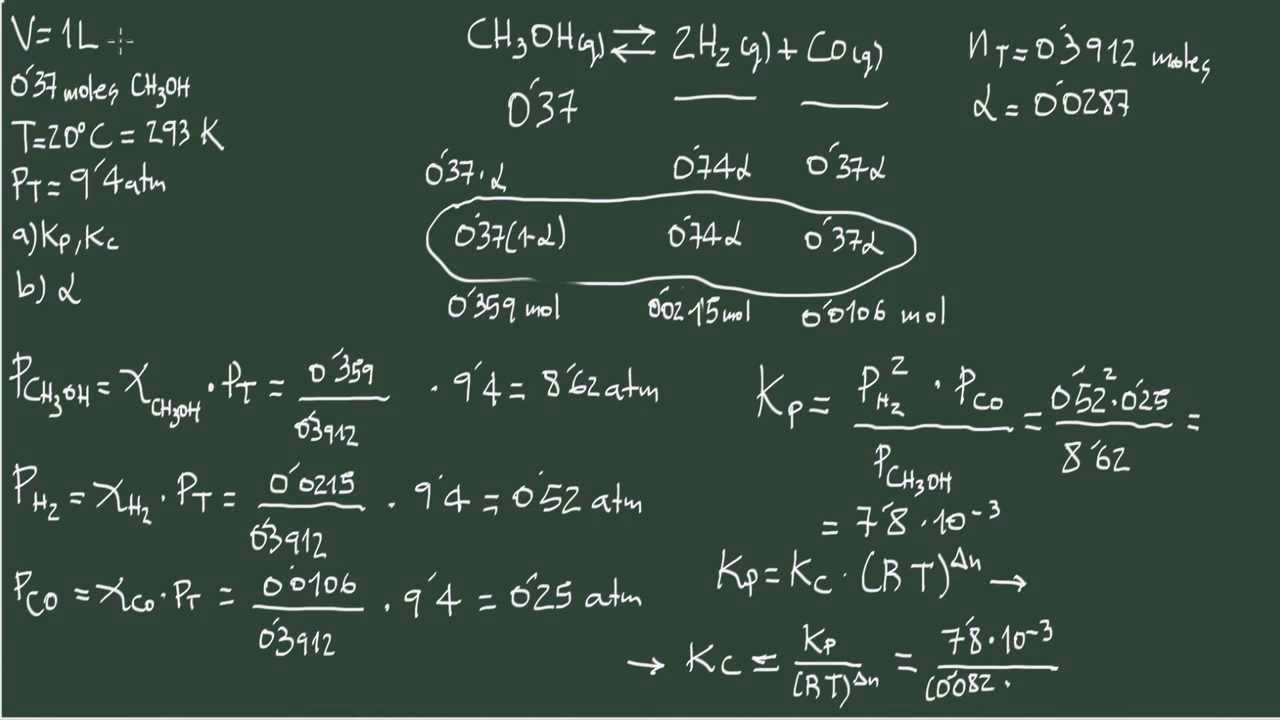 V = 1L
0'37 moles CH₃OH
T=20°C = 293 K
P_T = 9'4 atm
a) Kp, Kc
b) α
CH₃OH(g) ⇌ 2H₂(g) + CO(g)
0'37 — —
0'37·α 0'74α 0'37α
0'37(1-α) 0'74α 0'37α
0'359 mol 0'0215 mol 0'0106 mol
n_T = 0'3912 moles
α = 0'0287
P_CH₃OH = χ_CH₃OH · P_T = 0'359/0'3912 · 9'4 = 8'62 atm
P_H₂ = χ_H₂ · P_T = 0'0215/0'3912 · 9'4 = 0'52 atm
P_CO = χ_CO · P_T = 0'0106/0'3912 · 9'4 = 0'25 atm
Kp = P_H₂² · P_CO / P_CH₃OH = 0'52² · 0'25 / 8'62 =
= 7'8 · 10⁻³
Kp = Kc · (RT)^Δn →
→ Kc = Kp/(RT)^Δn = 7'8 · 10⁻³/(0'082 ·